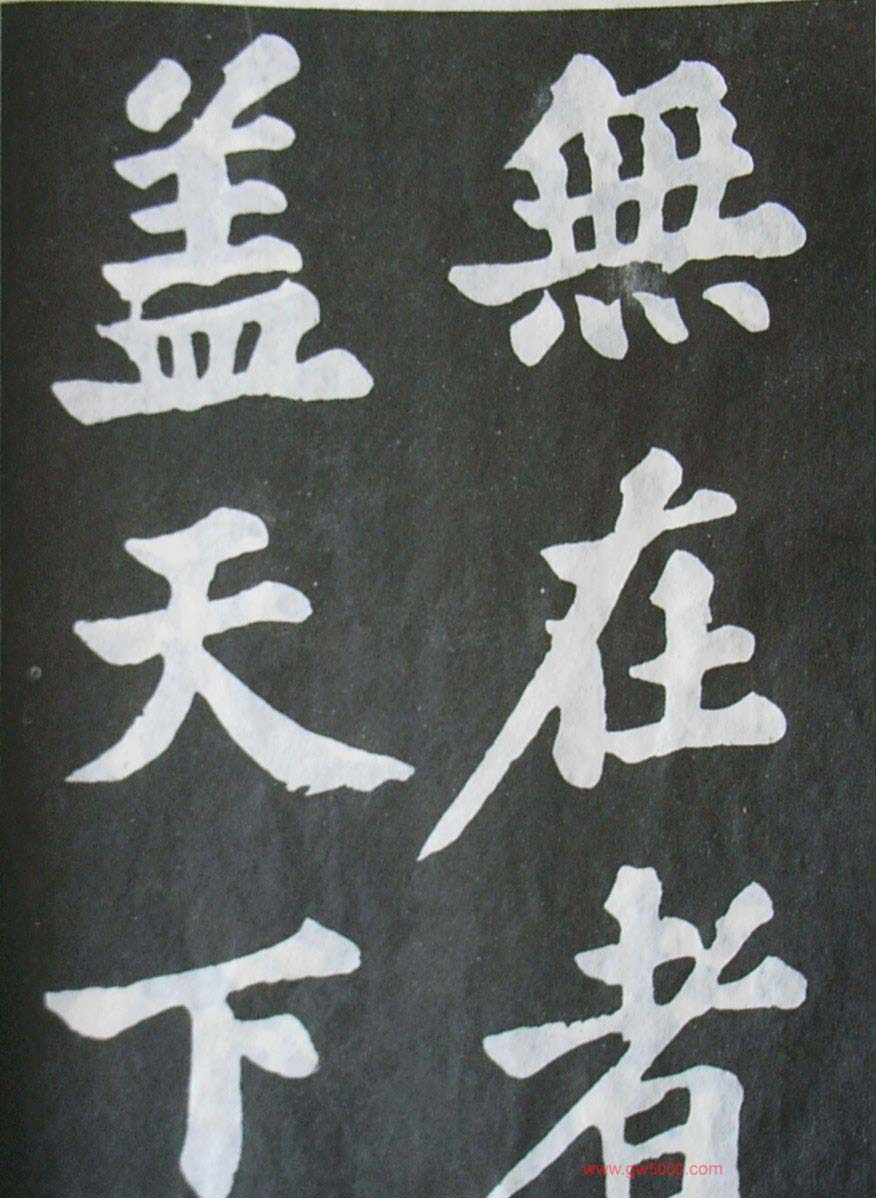 無在者
盖天下
www.gw5000.com